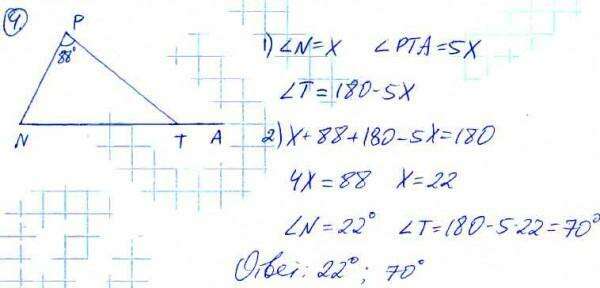 4
P
88°
N T A
1) ∠N=x ∠PTA=5x
∠T=180-5x
2) x+88+180-5x=180
4x=88 x=22
∠N=22° ∠T=180-5·22=70°
Ответ: 22°; 70°